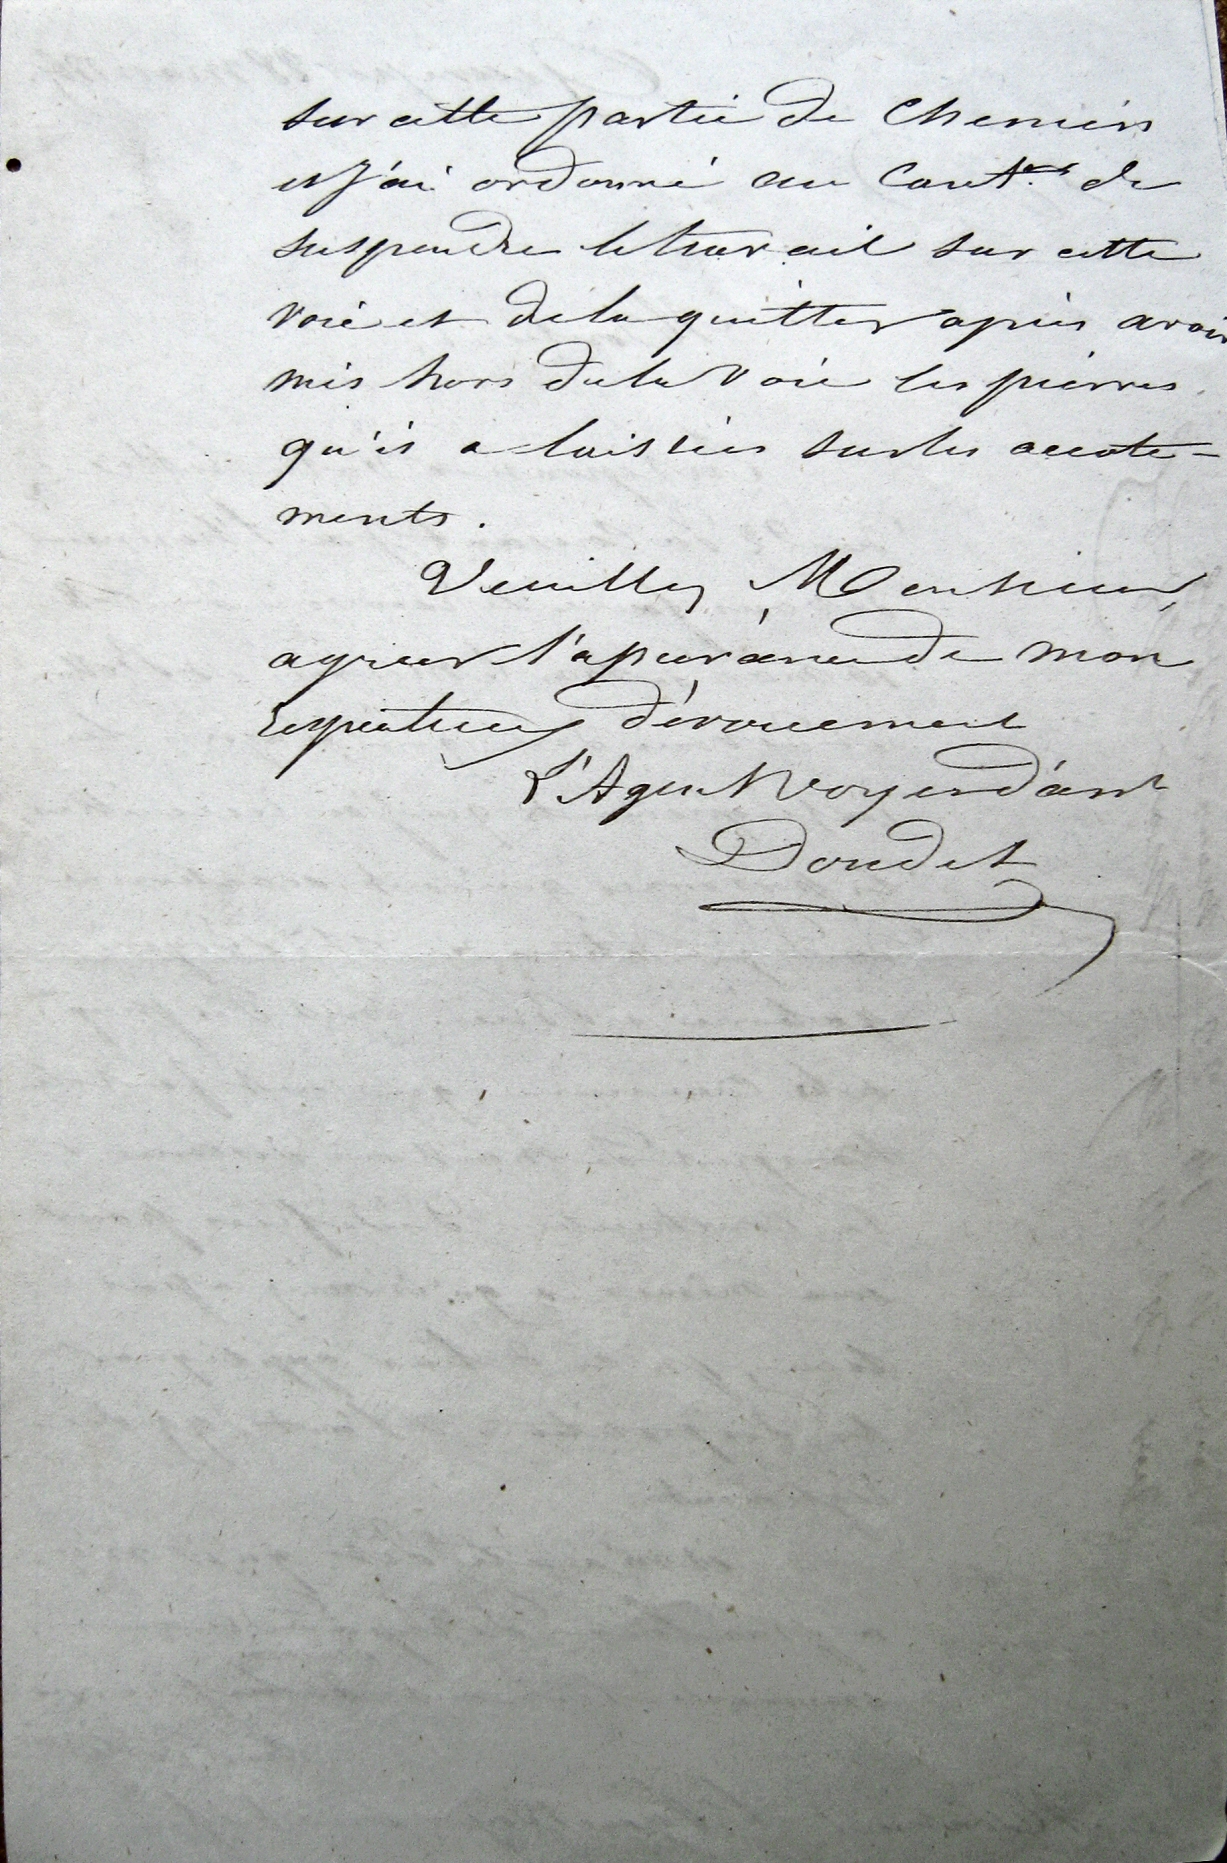 sur cette partie de Chemin
et J'ai ordonné au Cant.er de
suspendre le travail sur cette
voie et de la quitter après avoir
mis hors de la voie les pierres
qu'il a laissées sur les accote-
ments.
Veuillez Monsieur,
agréer l'assurance de mon
respectueux dévouement
L'Agent Voyer d'arrt
Doudet